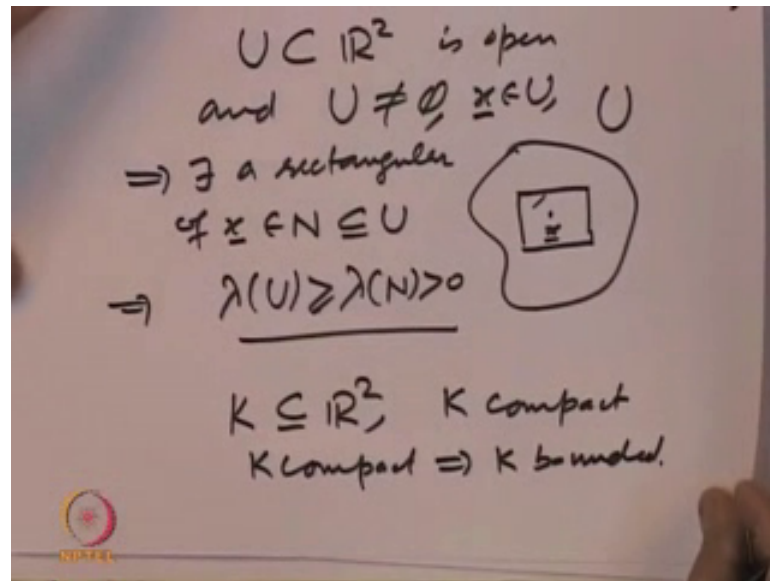 U ⊂ ℝ² is open
and U ≠ ∅, x ∈ U, U
⇒ ∃ a rectangular
of x ∈ N ⊆ U
x
⇒ λ(U) ≥ λ(N) > 0
K ⊆ ℝ², K compact
K compact ⇒ K bounded.
NPTEL